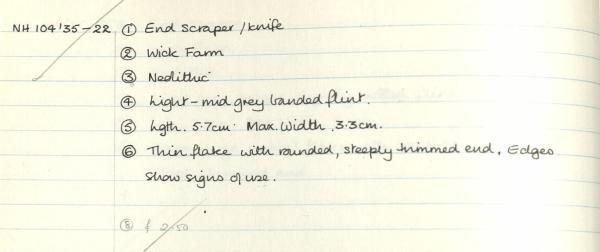 NH 104'35-22 ① End scraper/knife
② Wick Farm
③ Neolithic
④ Light-mid grey banded flint.
⑤ Lgth. 5.7cm. Max. Width. 3.3cm.
⑥ Thin flake with rounded, steeply trimmed end. Edges
show signs of use.
⑧ £ 2.50